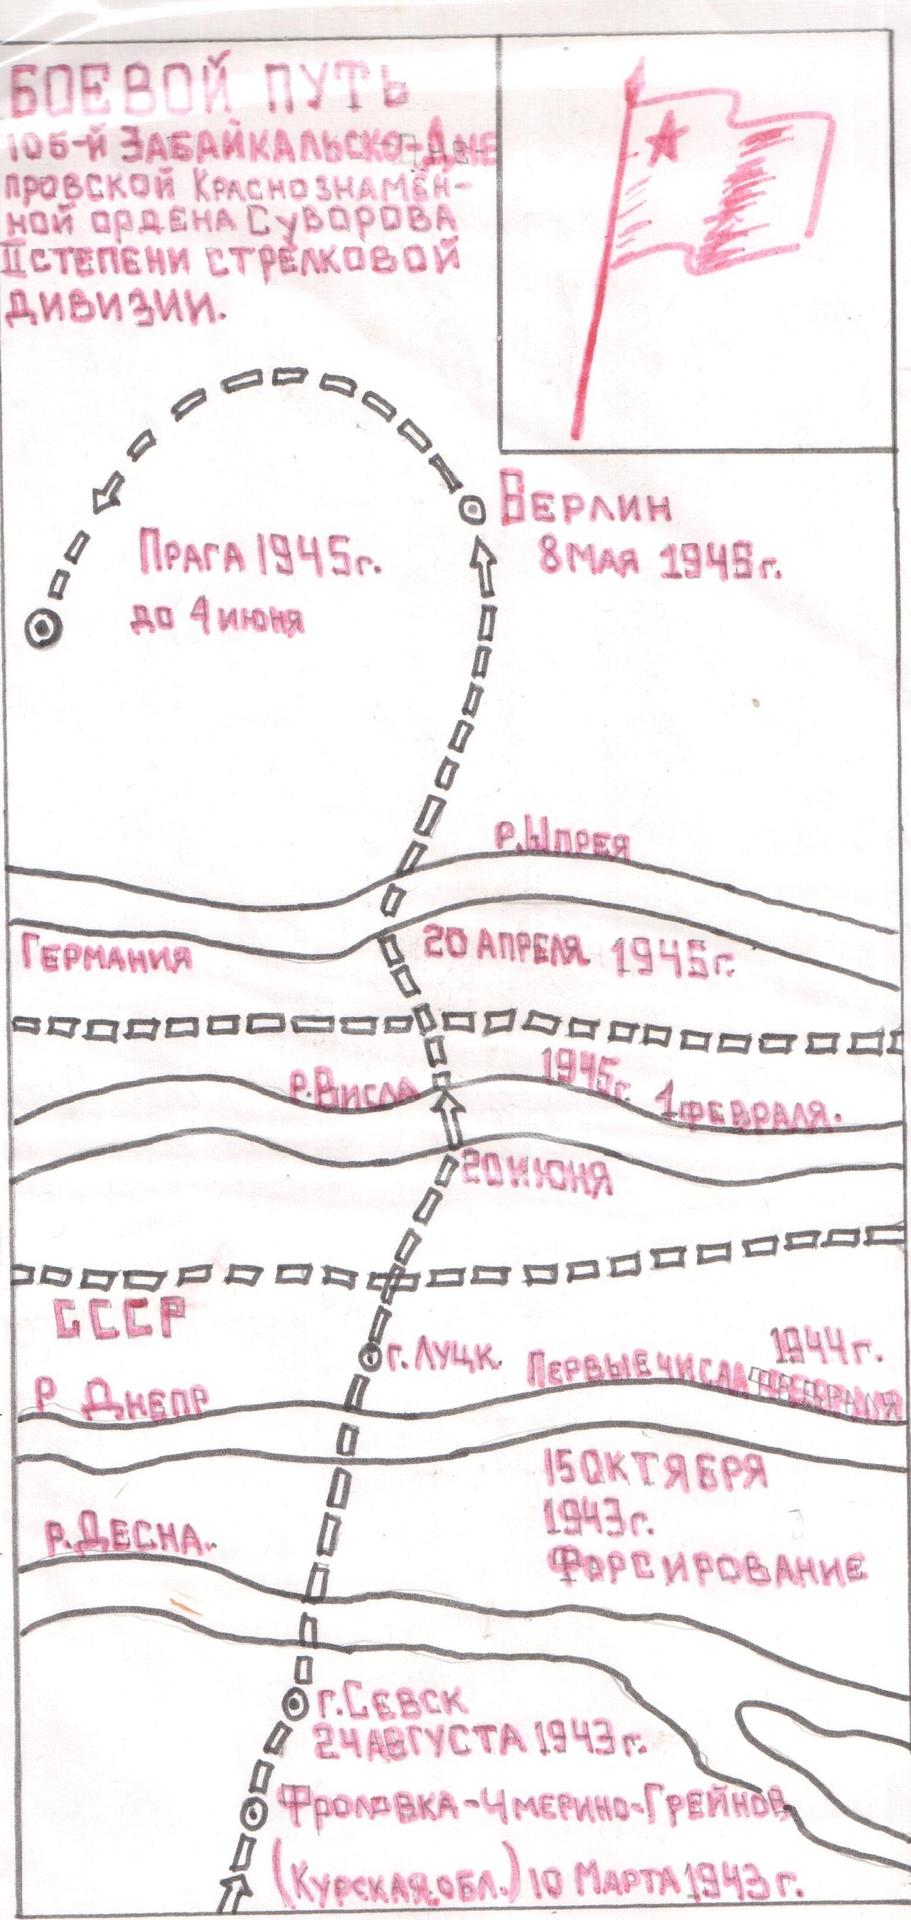 БОЕВОЙ ПУТЬ
106-й ЗАБАЙКАЛЬСКО-ДНЕ
ПРОВСКОЙ КРАСНОЗНАМЁН-
НОЙ ОРДЕНА СУВОРОВА
II СТЕПЕНИ СТРЕЛКОВОЙ
ДИВИЗИИ.
БЕРЛИН
8 МАЯ 1945г.
ПРАГА 1945г.
до 4 июня
р. ШПРЕЯ
ГЕРМАНИЯ
20 АПРЕЛЯ 1945г.
Р. ВИСЛА
1945г. 1 ФЕВРАЛЯ.
20 ИЮНЯ
СССР
г. ЛУЦК.
1944г.
ПЕРВЫЕ ЧИСЛА ФЕВРАЛЯ
Р ДНЕПР
15 ОКТЯБРЯ
1943г.
ФОРСИРОВАНИЕ
р. ДЕСНА.
г. СЕВСК
24 АВГУСТА 1943г.
ФРОЛОВКА-ЧМЕРИНО-ГРЕЙНОВ
(КУРСКАЯ.ОБЛ.) 10 МАРТА 1943г.